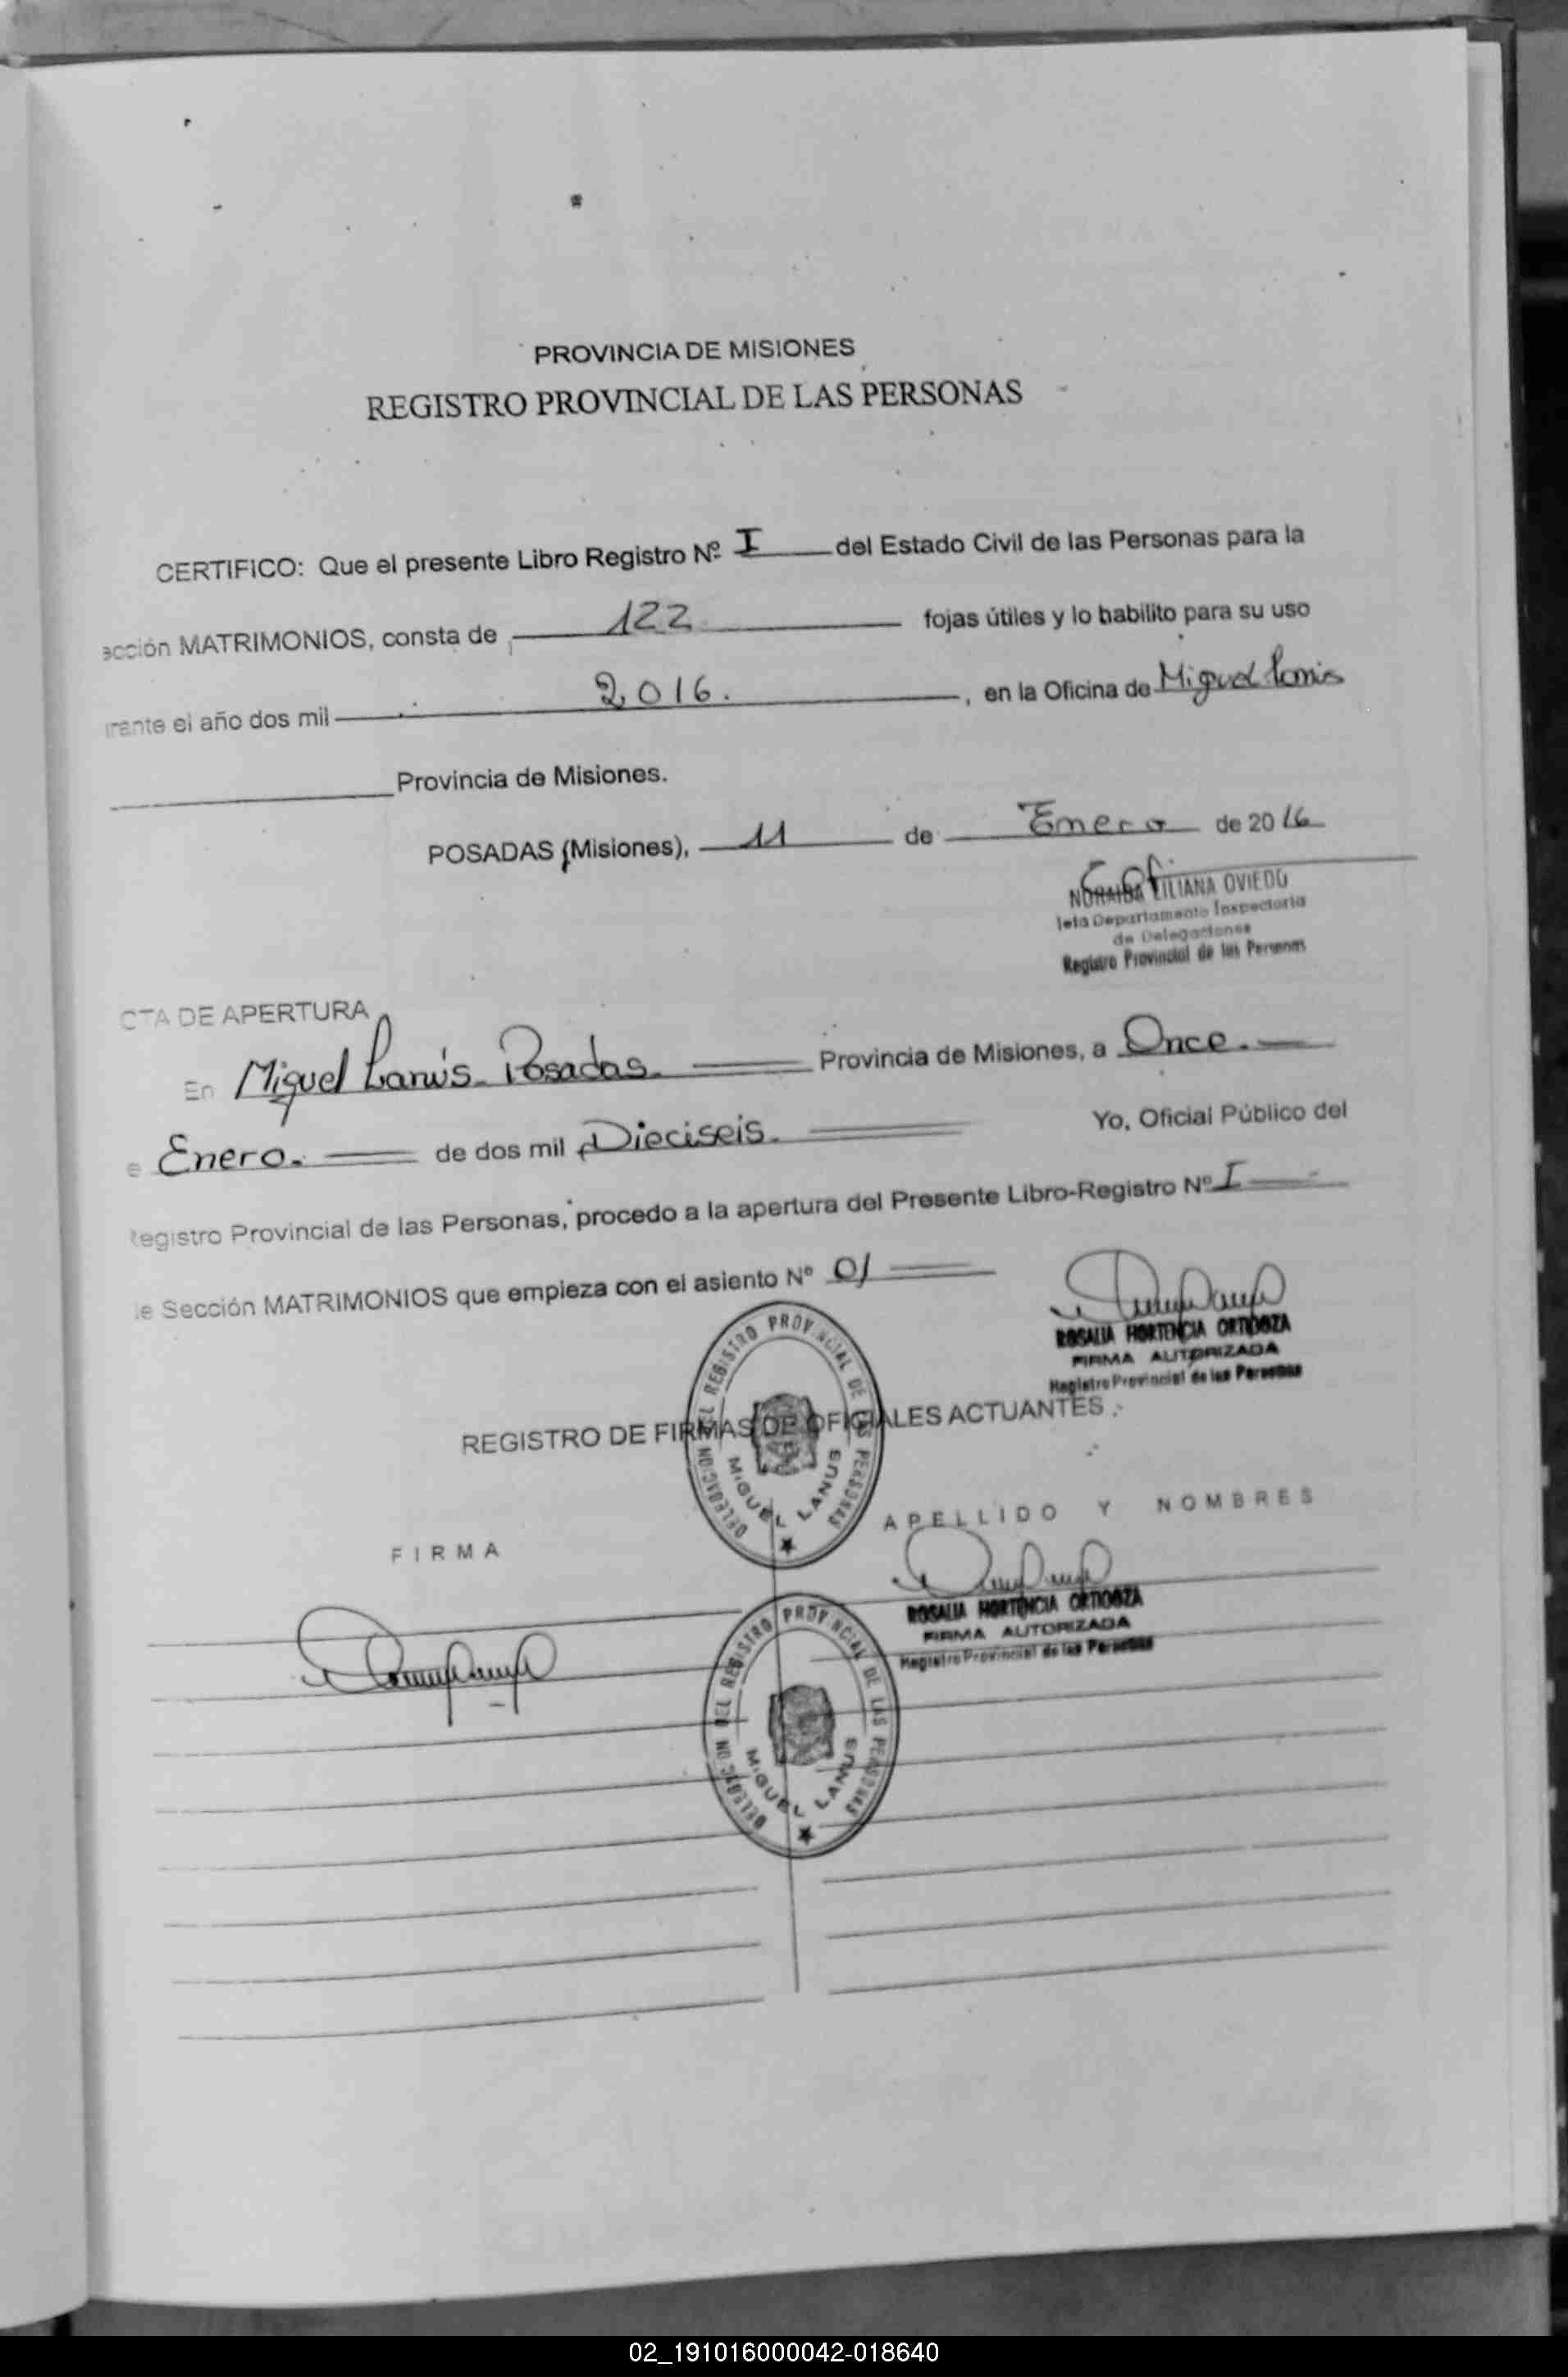 PROVINCIA DE MISIONES
REGISTRO PROVINCIAL DE LAS PERSONAS
CERTIFICO: Que el presente Libro Registro Nº I del Estado Civil de las Personas para la
ección MATRIMONIOS, consta de 122 fojas útiles y lo habilito para su uso
urante el año dos mil 2.016. , en la Oficina de Miguel Lanús
Provincia de Misiones.
POSADAS (Misiones), 11 de Enero de 2016
NORAIBA LILIANA OVIEDO
Jefa Departamento Inspectoría
de Delegaciones
Registro Provincial de las Personas
CTA DE APERTURA
En Miguel Lanús - Posadas. Provincia de Misiones, a Once.
e Enero. de dos mil Dieciseis. Yo, Oficial Público del
Registro Provincial de las Personas, procedo a la apertura del Presente Libro-Registro Nº I
de Sección MATRIMONIOS que empieza con el asiento Nº 01
ROSALIA HORTENCIA ORTIGOZA
FIRMA AUTORIZADA
Registro Provincial de las Personas
DELEGACION DEL REGISTRO PROVINCIAL DE LAS PERSONAS
MIGUEL LANUS
REGISTRO DE FIRMAS DE OFICIALES ACTUANTES
FIRMA
APELLIDO Y NOMBRES
ROSALIA HORTENCIA ORTIGOZA
FIRMA AUTORIZADA
Registro Provincial de las Personas
DELEGACION DEL REGISTRO PROVINCIAL DE LAS PERSONAS
MIGUEL LANUS
02_191016000042-018640